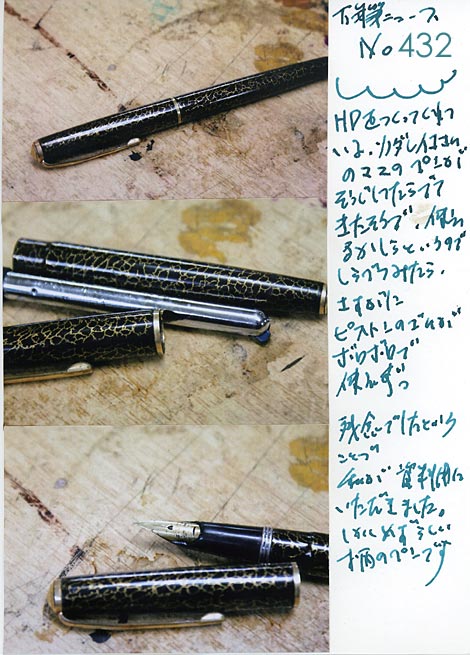 ニュース
No 432
HPをつくってくれて
いる
のママのペンが
そうじしてたらでて
きたそうで、使え
るかしらというので
しらべてみたら、
さすがに
ピストンのゴムが
ボロボロで
使えず
残念でしたという
ことで
私が資料用に
いただきました。
しかしめずらしい
柄のペンです